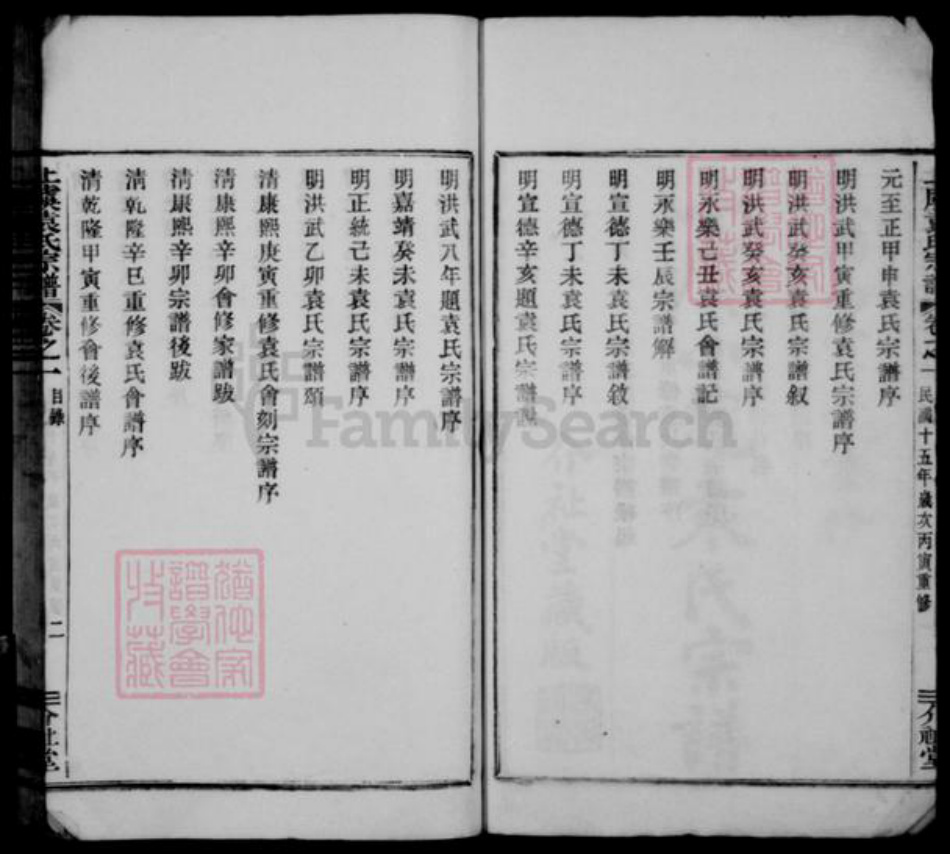 元至正甲申袁氏宗譜序
明洪武甲寅重修袁氏宗譜序
明洪武癸亥袁氏宗譜叙
明洪武癸亥袁氏宗譜序
明永樂己丑袁氏會譜記
明永樂壬辰宗譜解
明宣德丁未袁氏宗譜敘
明宣德丁未袁氏宗譜序
明宣德辛亥題袁氏宗譜説
民國十五年歲次丙寅重修
介祉堂
明洪武八年題袁氏宗譜序
明嘉靖癸未袁氏宗譜序
明正統己未袁氏宗譜序
明洪武乙卯袁氏宗譜頌
清康熙庚寅重修袁氏會刻宗譜序
清康熙辛卯會修家譜跋
清康熙辛卯宗譜後跋
清乹隆辛巳重修袁氏會譜序
清乾隆甲寅重修會後譜序
上虞袁氏宗譜
卷之一
目錄
二
介祉堂
譜學會
收藏
FamilySearch